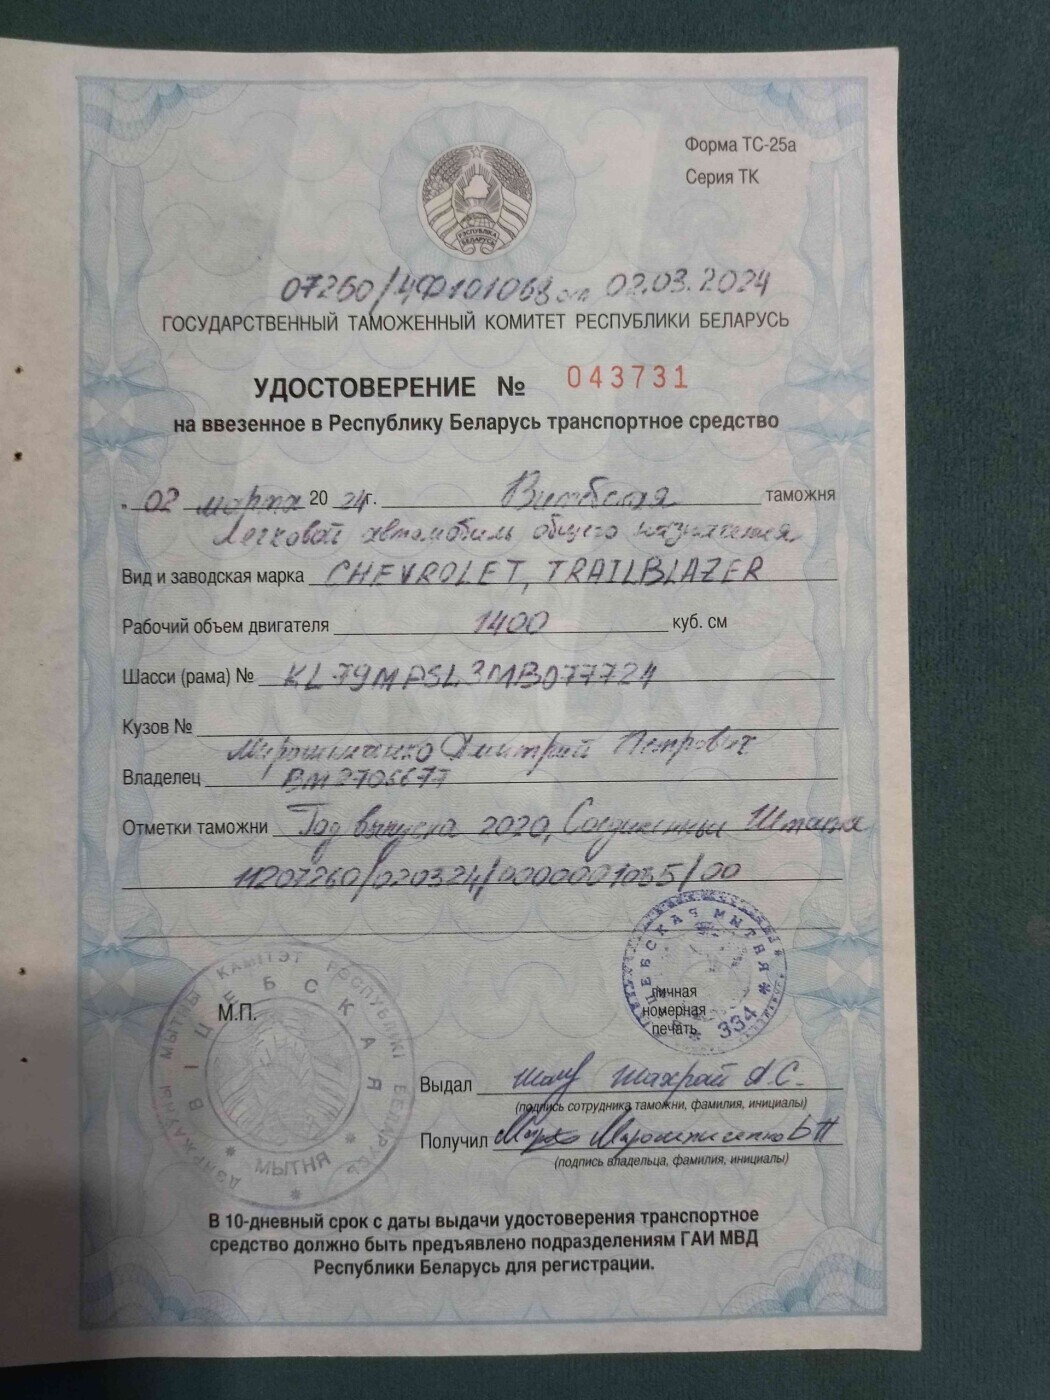 Форма ТС-25а
Серия ТК
РЭСПУБЛІКА
БЕЛАРУСЬ
07260/4Ф101068 от 02.03.2024
ГОСУДАРСТВЕННЫЙ ТАМОЖЕННЫЙ КОМИТЕТ РЕСПУБЛИКИ БЕЛАРУСЬ
УДОСТОВЕРЕНИЕ № 043731
на ввезенное в Республику Беларусь транспортное средство
" 02 марта 20 24 г. Витебская таможня
Легковой автомобиль общего назначения
Вид и заводская марка CHEVROLET, TRAILBLAZER
Рабочий объем двигателя 1400 куб. см
Шасси (рама) № KL79MPSL3MB077724
Кузов №
Мирошниченко Дмитрий Петрович
Владелец ВМ2706677
Отметки таможни Год выпуска 2020, Соединенные Штаты
11207260/020324/0000001035/00
ВІЦЕБСКАЯ МЫТНЯ
334
личная
номерная
печать
М.П.
ДЗЯРЖАЎНЫ МЫТНЫ КАМІТЭТ РЭСПУБЛІКІ БЕЛАРУСЬ
ВІЦЕБСКАЯ
МЫТНЯ
Выдал Шахрай А.С.
(подпись сотрудника таможни, фамилия, инициалы)
Получил
(подпись владельца, фамилия, инициалы)
В 10-дневный срок с даты выдачи удостоверения транспортное
средство должно быть предъявлено подразделениям ГАИ МВД
Республики Беларусь для регистрации.